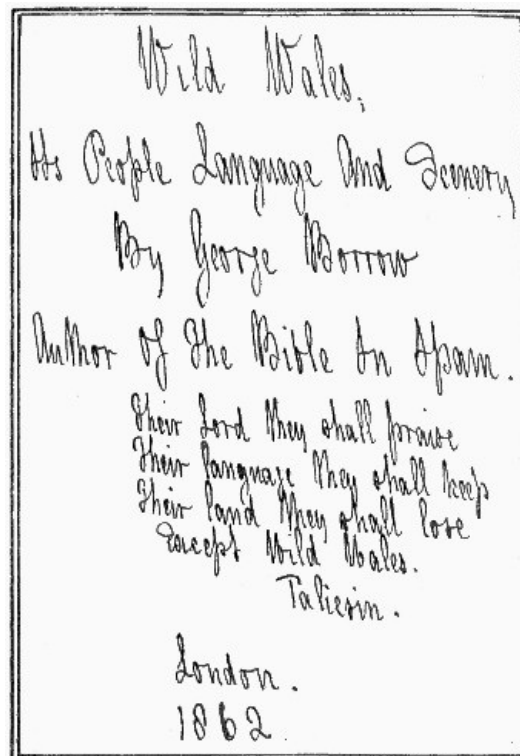 Wild Wales,
Its People Language And Scenery
By George Borrow
Author Of The Bible In Spain.
Their Lord they shall praise
Their language they shall keep
Their land they shall lose
Except Wild Wales.
Taliesin.
London.
1862